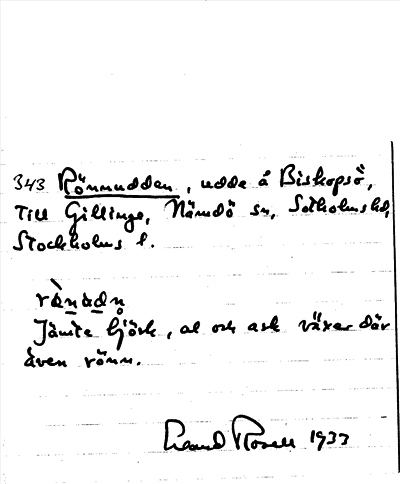 343 Rönnudden, udde å Biskopsö,
Till Gillinge, Nämdö sn, Sotholms hd,
Stockholms l.
rànàdn̥
Jämte björk, al och ask växer där
även rönn.
Rosell 1933